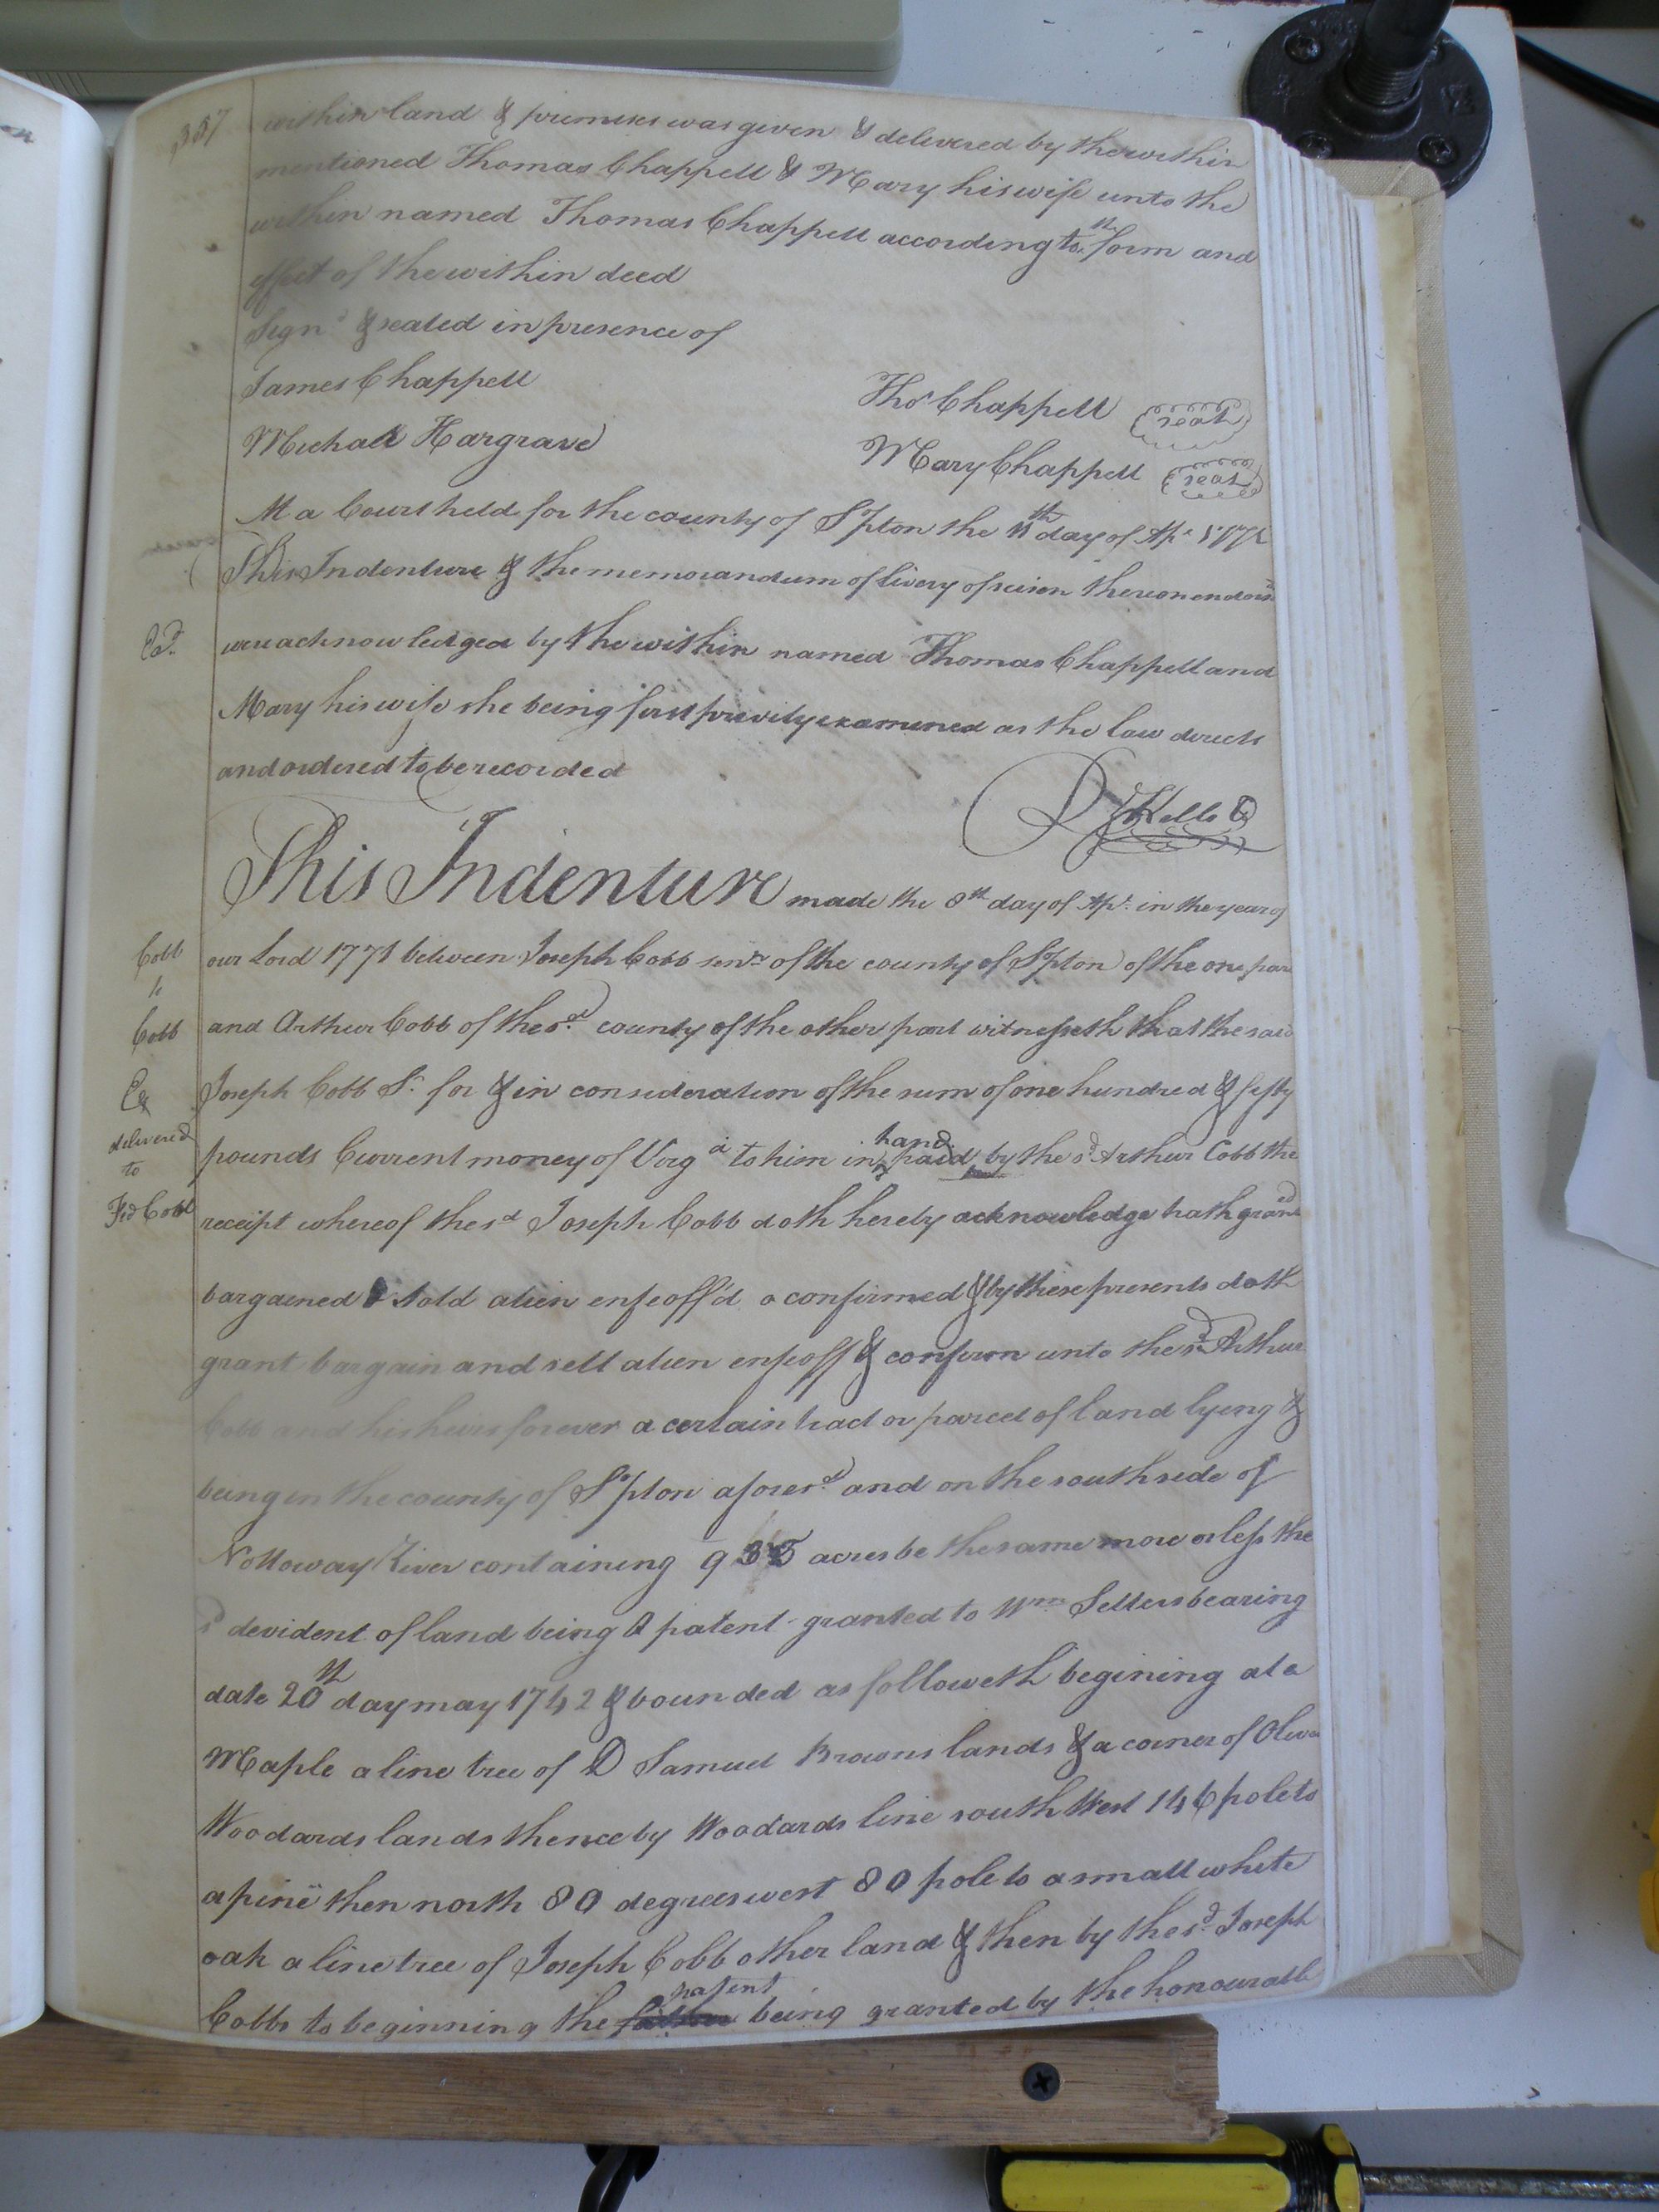 357
within land & premises was given & delivered by the within
mentioned Thomas Chappell & Mary his wife unto the
within named Thomas Chappell according to th form and
effect of the within deed
Sign'd & sealed in presence of
James Chappell
Thos Chappell seal
Michael Hargrave
Mary Chappell seal
At a Court held for the county of S'pton the th day of Apl
This Indenture & the memorandum of livery of seisen thereon endors'd
Ex'd
were acknowledged by the within named Thomas Chappell and
Mary his wife she being first privily examened as the law directs
and ordered to be recorded
Kello C
This Indenture made the 8th day of Apl. in the year of
Cobb
to
Cobb
Ex
delivered
to
Fed Cobb
our Lord 1771 between Joseph Cobb senr of the county of S'pton of the one part
and Arthur Cobb of the sd county of the other part witnesseth that the said
Joseph Cobb Sr for & in consideration of the sum of one hundred & fifty
pounds Current money of Virga to him in hand paid by the sd Arthur Cobb the
receipt whereof the sd Joseph Cobb doth hereby acknowledge hath grand
bargained & sold alien enfeoff'd & confirmed & by these presents doth
grant bargain and sell alien enfeoff & confirm unto the sd Arthur
Cobb and his heirs forever a certain tract or parcel of land lying &
being in the county of S'pton aforesd and on the south side of
Nottoway River containing acres be the same more or less the
sd devident of land being a patent granted to Wm Sellers bearing
date 20th day may 1742 & bounded as followeth begining at a
Maple a line tree of D Samuel Browns lands & a corner of Oliver
Woodards lands thence by Woodards line south West 146 pole to
a pine then north 80 degrees west 80 pole to a small white
oak a line tree of Joseph Cobb other land & then by the sd Joseph
Cobbs to beginning the patent being granted by the honourable